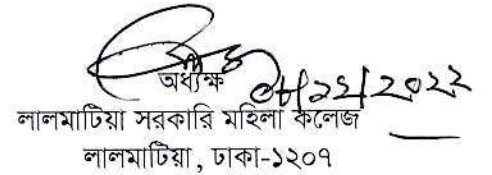 অধ্যক্ষ
০৮/১২/২০২২
লালমাটিয়া সরকারি মহিলা কলেজ
লালমাটিয়া, ঢাকা-১২০৭